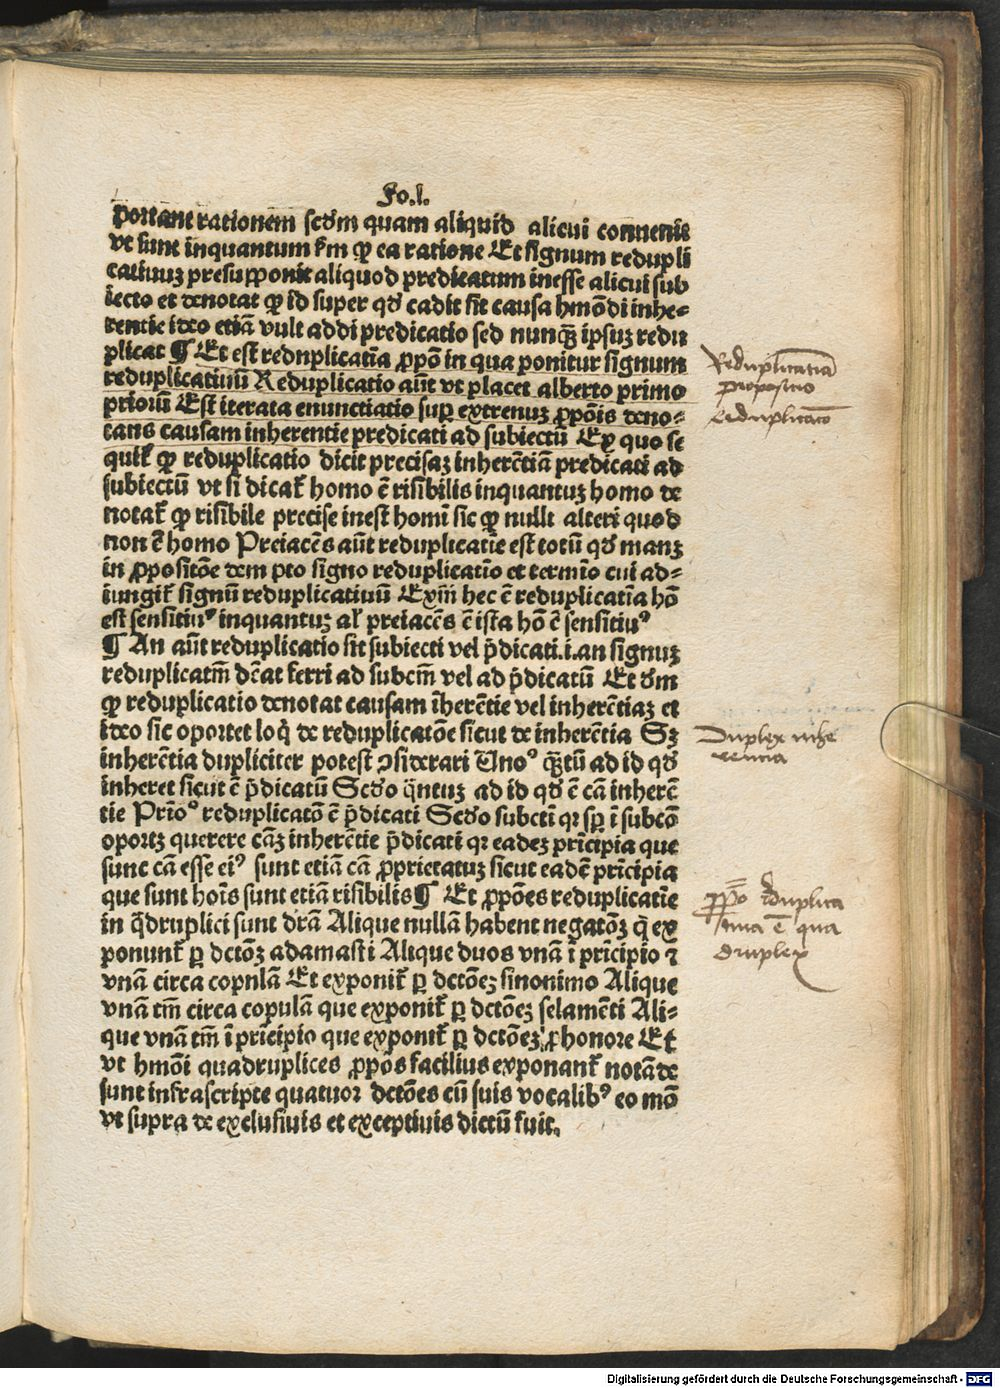 Fo.l.
portant rationem scd̄m quam aliquid alicui conuenit
vt sunt inquantum s̄m ꝙ ea ratione Et signum redupli
catiuuꝫ presupponit aliquod predicatum inesse alicui sub
iecto et denotat ꝙ id super qd̄ cadit sit causa hmōdi inhe⸗
rentie ideo etiā vult addi predicatio sed nunq̄ꝫ ipsuꝫ redu
plicat ¶ Et est reduplicatīa ꝓpō in qua ponitur signum
reduplicatiuū Reduplicatio aūt vt placet alberto primo
priorū Est iterata enunctiatio suꝑ extremuꝫ ꝓpōis deno⸗
tans causam inherentie predicati ad subiectū Ex quo se
quit̄ ꝙ reduplicatio dicit precisaꝫ inherētiā predicati ad
subiectū vt si dicat̄ homo ē risibilis inquantuꝫ homo de
notat̄ ꝙ risibile precise inest homī sic ꝙ nulli alteri quod
non ē homo Preiacēs aūt reduplicatīe est totū qd̄ manꝫ
in ꝓpositōe dempto signo reduplicatīo et termīo cui ad⸗
iungit̄ signū reduplicatiuū Exm̄ hec ē reduplicatīa hō
est sensitiuꝰ inquantuꝫ al̄ preiacēs ē ista hō ē sensitiuꝰ
¶ An aūt reduplicatio sit subiecti vel p̄dicati.i.an signuꝫ
reduplicatm̄ dēat ferri ad subcm̄ vel ad p̄dicatū Et d̄m
ꝙ reduplicatio denotat causam īherētie vel inherētiaꝫ et
ideo sic oportet loq̄ de reduplicatōe sicut de inherētia Sꝫ
inherētia dupliciter potest ꝯsiderari Unoꝰ q̄ꝫtū ad id qd̄
inheret sicut ē p̄dicatū Scd̄o q̄ntuꝫ ad id qd̄ ē cā inherē
tie Prīoꝰ reduplicatō ē p̄dicati Scd̄o subcti qꝛ sꝑ ī subcō
oportꝫ querere cāꝫ inherētie p̄dicati qꝛ eadeꝫ prīcipia que
sunt cā esse eiꝰ sunt etiā cā ꝓprietatuꝫ sicut eadē prīcipia
que sunt hoīs sunt etiā risibilis¶ Et ꝓpōes reduplicatīe
in q̄druplici sunt dr̄ā Alique nullā habent negatōꝫ q̄ ex
ponunt̄ ꝑ dctōꝫ adamasti Alique duos vnā ī prīcipio ⁊
vnā circa copulā Et exponit̄ ꝑ dctōeꝫ sinonimo Alique
vnā tm̄ circa copulā que exponit̄ ꝑ dctōeꝫ selamēti Ali⸗
que vnā tm̄ ī prīcipio que exponit̄ ꝑ dctōeꝫ ꝓhonore Et
vt hmōi quadruplices ꝓpōs facilius exponant̄ notāde
sunt infrascripte quatuor dctōes cū suis vocalibꝰ eo mō
vt supra de exclusiuis et exceptiuis dictū fuit.
Reduplicatiua
propositio
Reduplicatio
Duplex inhe
rentia
ꝓpō reduplica
tiua ē qua
druplex
Digitalisierung gefördert durch die Deutsche Forschungsgemeinschaft - DFG